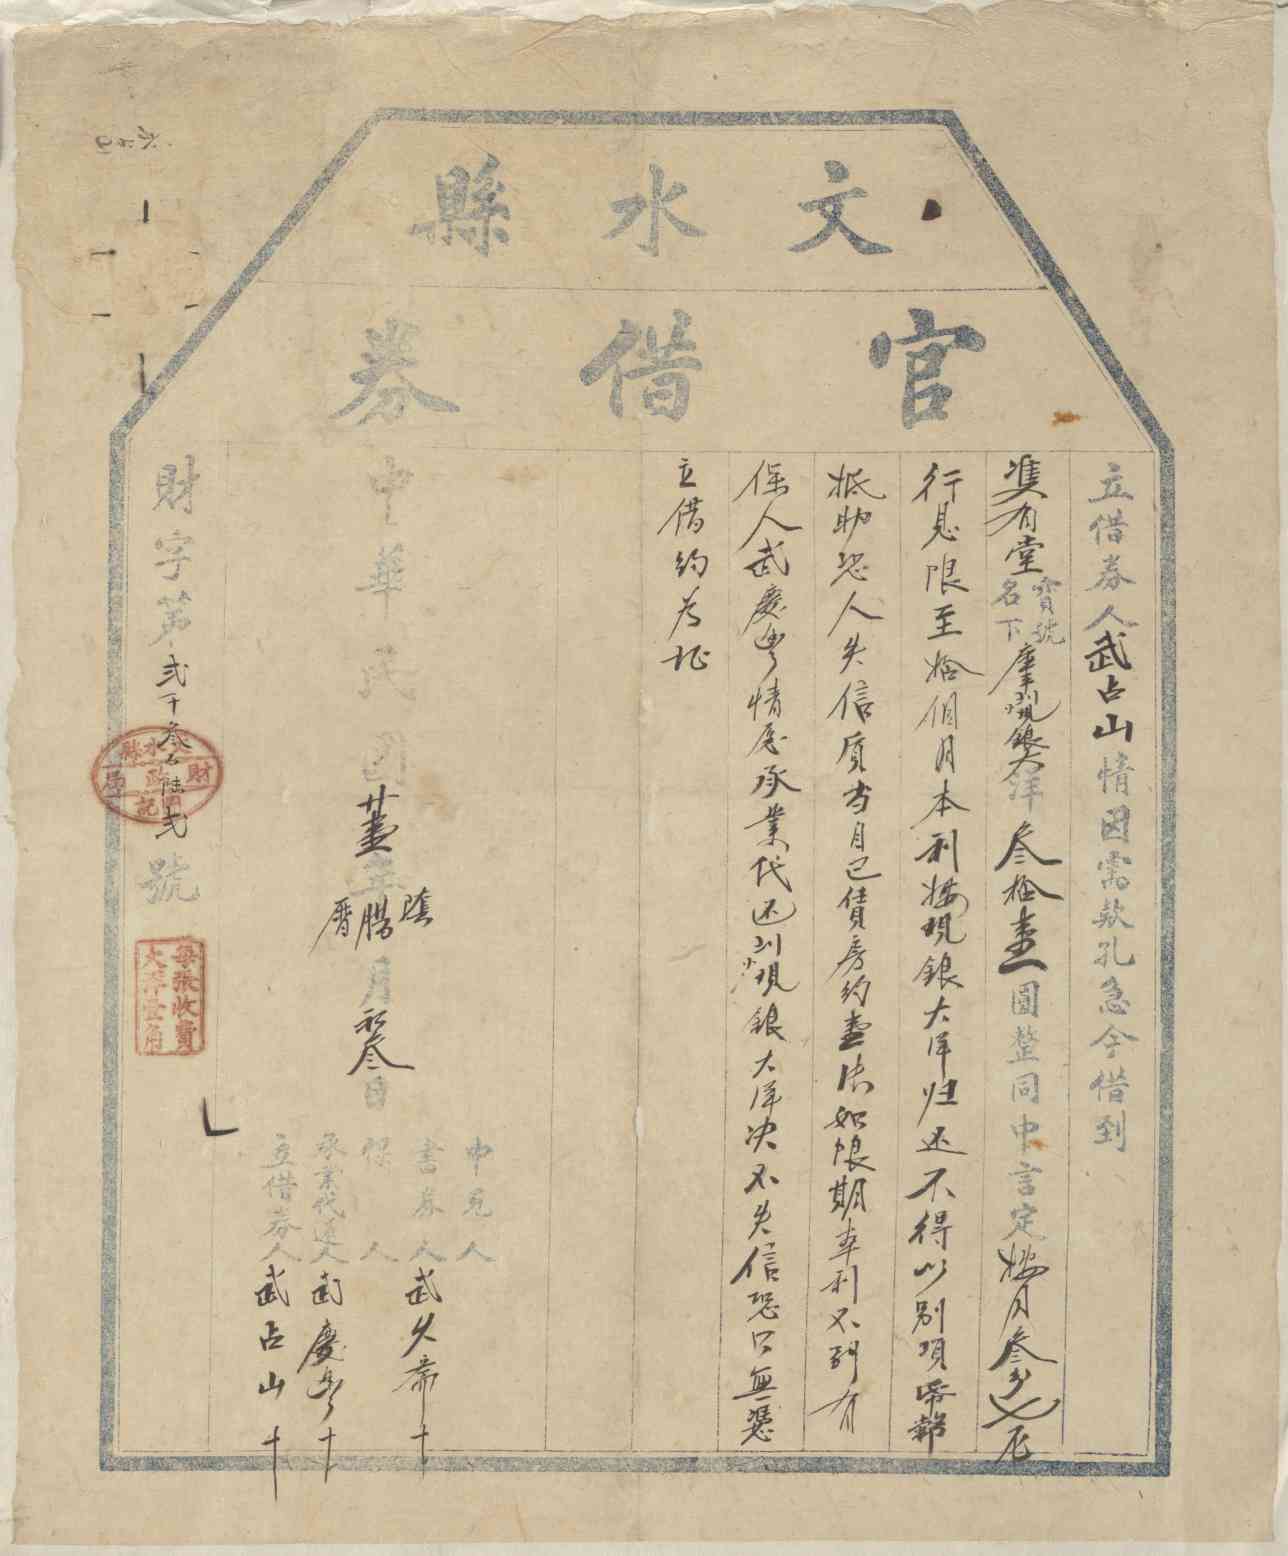 文水縣
官借券
立借券人武占山情因需款孔急今借到
雙有堂寶號名下庫平現銀大洋叁拾壹圓整同中言定按月叁分行息
行息限至拾個月本利按現銀大洋归还不得以别項紙幣
抵助恐人失信質当自己賃房約壹張如限期本利不到有
保人武慶 情愿承業代还 現銀大洋决不失信恐口無憑
立借約为证
中華民國廿壹年陰曆腊月初叁日
中見人
書券人武久齋十
保人
承業代還人武慶 十
立借券人武占山十
財字第弍千叁百陸弍號
文水縣財政局圖記
每張收費大洋壹角